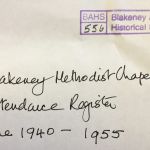 BAHS
556
Blakeney A
Historical
lakeney Methodist Chape
ttendance Register
ne 1940 - 1955